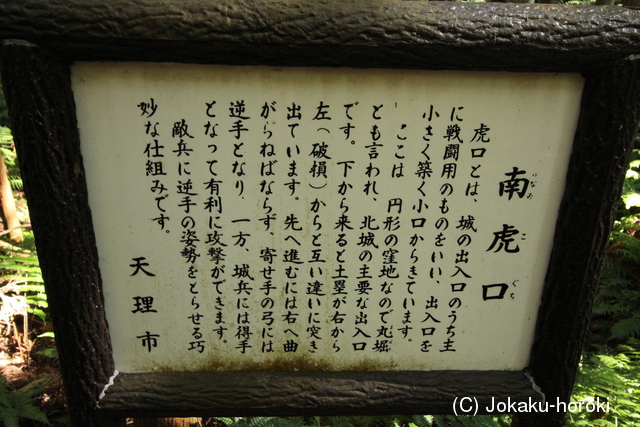 南虎口
なみ こ ぐち
虎口とは、城の出入口のうち主
に戦闘用のものをいい、出入口を
小さく築く小口からきています。
ここは 円形の窪地なので丸堀
とも言われ、北城の主要な出入口
です。下から来ると土塁が右から
左（破損）からと互い違いに突き
出ています。先へ進むには右へ曲
がらねばならず、寄せ手の弓には
逆手となり、一方、城兵には得手
となって有利に攻撃ができます。
敵兵に逆手の姿勢をとらせる巧
妙な仕組みです。
天理市
(C) Jokaku-horoki